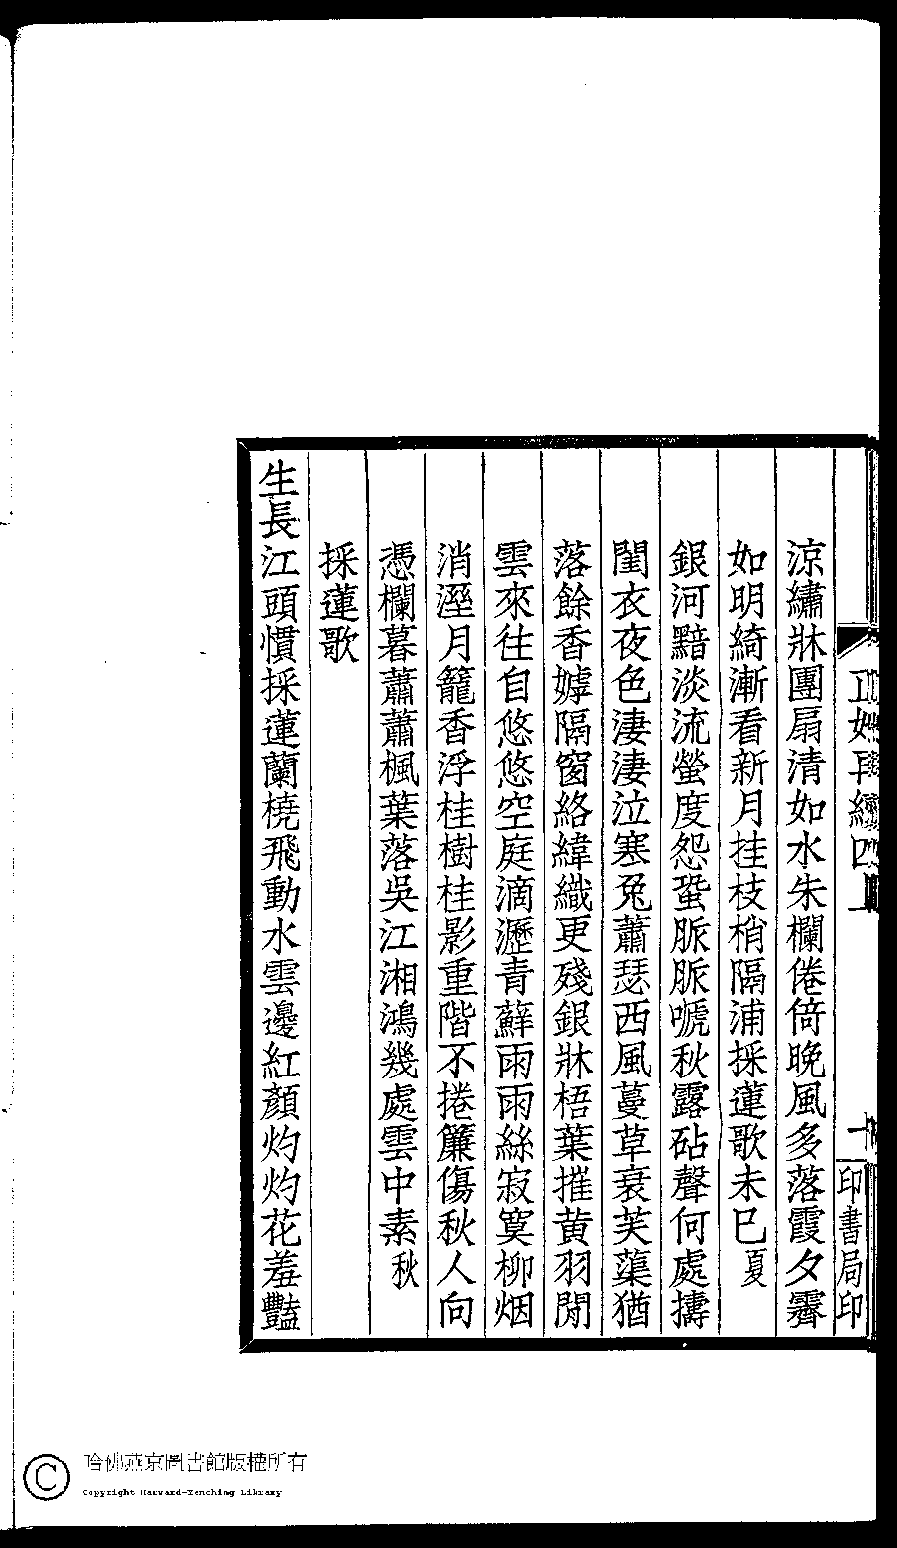 涼繡牀團扇清如水朱欄倦倚晚風多落霞夕霽
如明綺漸看新月挂枝梢隔浦採蓮歌未已夏
銀河黯淡流螢度怨蛩脈脈唬秋露砧聲何處擣
閨衣夜色淒淒泣寒兔蕭瑟西風蔓草衰芙蕖猶
落餘香嫭隔窗絡緯織更殘銀牀梧葉摧黃羽閒
雲來往自悠悠空庭滴瀝青蘚雨雨絲寂寞柳烟
消溼月籠香浮桂樹桂影重階不捲簾傷秋人向
憑欄暮蕭蕭楓葉落吳江湘鴻幾處雲中素秋
採蓮歌
生長江頭慣採蓮蘭橈飛動水雲邊紅顏灼灼花羞豔
印書局印
哈佛燕京圖書館版權所有
Copyright Harvard-Yenching Library